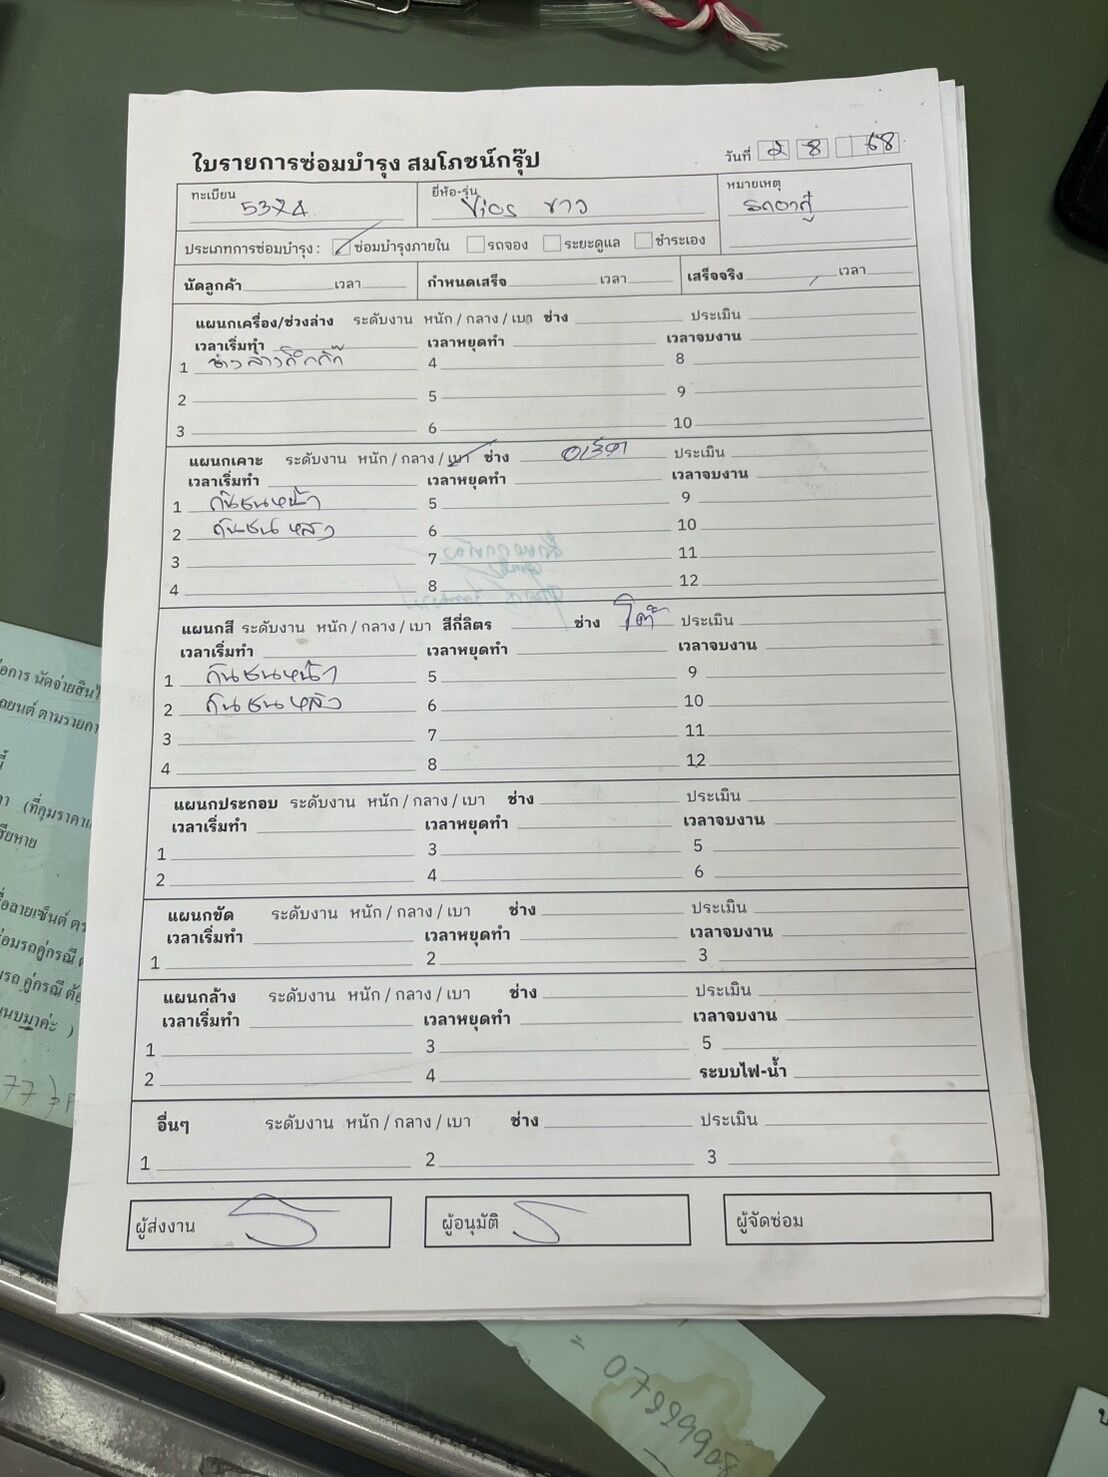 ใบรายการซ่อมบำรุง สมโภชน์กรุ๊ป
วันที่ 2 8 68
ทะเบียน 5374 ยี่ห้อ-รุ่น Vios ขาว หมายเหตุ รถอาภู่
ประเภทการซ่อมบำรุง : ซ่อมบำรุงภายใน รถจอง ระยะดูแล ชำระเอง
นัดลูกค้า เวลา กำหนดเสร็จ เวลา เสร็จจริง เวลา
แผนกเครื่อง/ช่วงล่าง ระดับงาน หนัก / กลาง / เบา ช่าง ประเมิน
เวลาเริ่มทำ เวลาหยุดทำ เวลาจบงาน
1 ช่วงล่างกึกกัก 4 8
2 5 9
3 6 10
แผนกเคาะ ระดับงาน หนัก / กลาง / เบา ช่าง ประเมิน
เวลาเริ่มทำ เวลาหยุดทำ เวลาจบงาน
1 กันชนหน้า 5 9
2 กันชน หลัง 6 10
3 7 11
4 8 12
แผนกสี ระดับงาน หนัก / กลาง / เบา สีกี่ลิตร ช่าง โต้ ประเมิน
เวลาเริ่มทำ เวลาหยุดทำ เวลาจบงาน
1 กันชนหน้า 5 9
2 กันชน หลัง 6 10
3 7 11
4 8 12
แผนกประกอบ ระดับงาน หนัก / กลาง / เบา ช่าง ประเมิน
เวลาเริ่มทำ เวลาหยุดทำ เวลาจบงาน
1 3 5
2 4 6
แผนกขัด ระดับงาน หนัก / กลาง / เบา ช่าง ประเมิน
เวลาเริ่มทำ เวลาหยุดทำ เวลาจบงาน
1 2 3
แผนกล้าง ระดับงาน หนัก / กลาง / เบา ช่าง ประเมิน
เวลาเริ่มทำ เวลาหยุดทำ เวลาจบงาน
1 3 5
2 4 ระบบไฟ-น้ำ
อื่นๆ ระดับงาน หนัก / กลาง / เบา ช่าง ประเมิน
1 2 3
ผู้ส่งงาน ผู้อนุมัติ ผู้จัดซ่อม